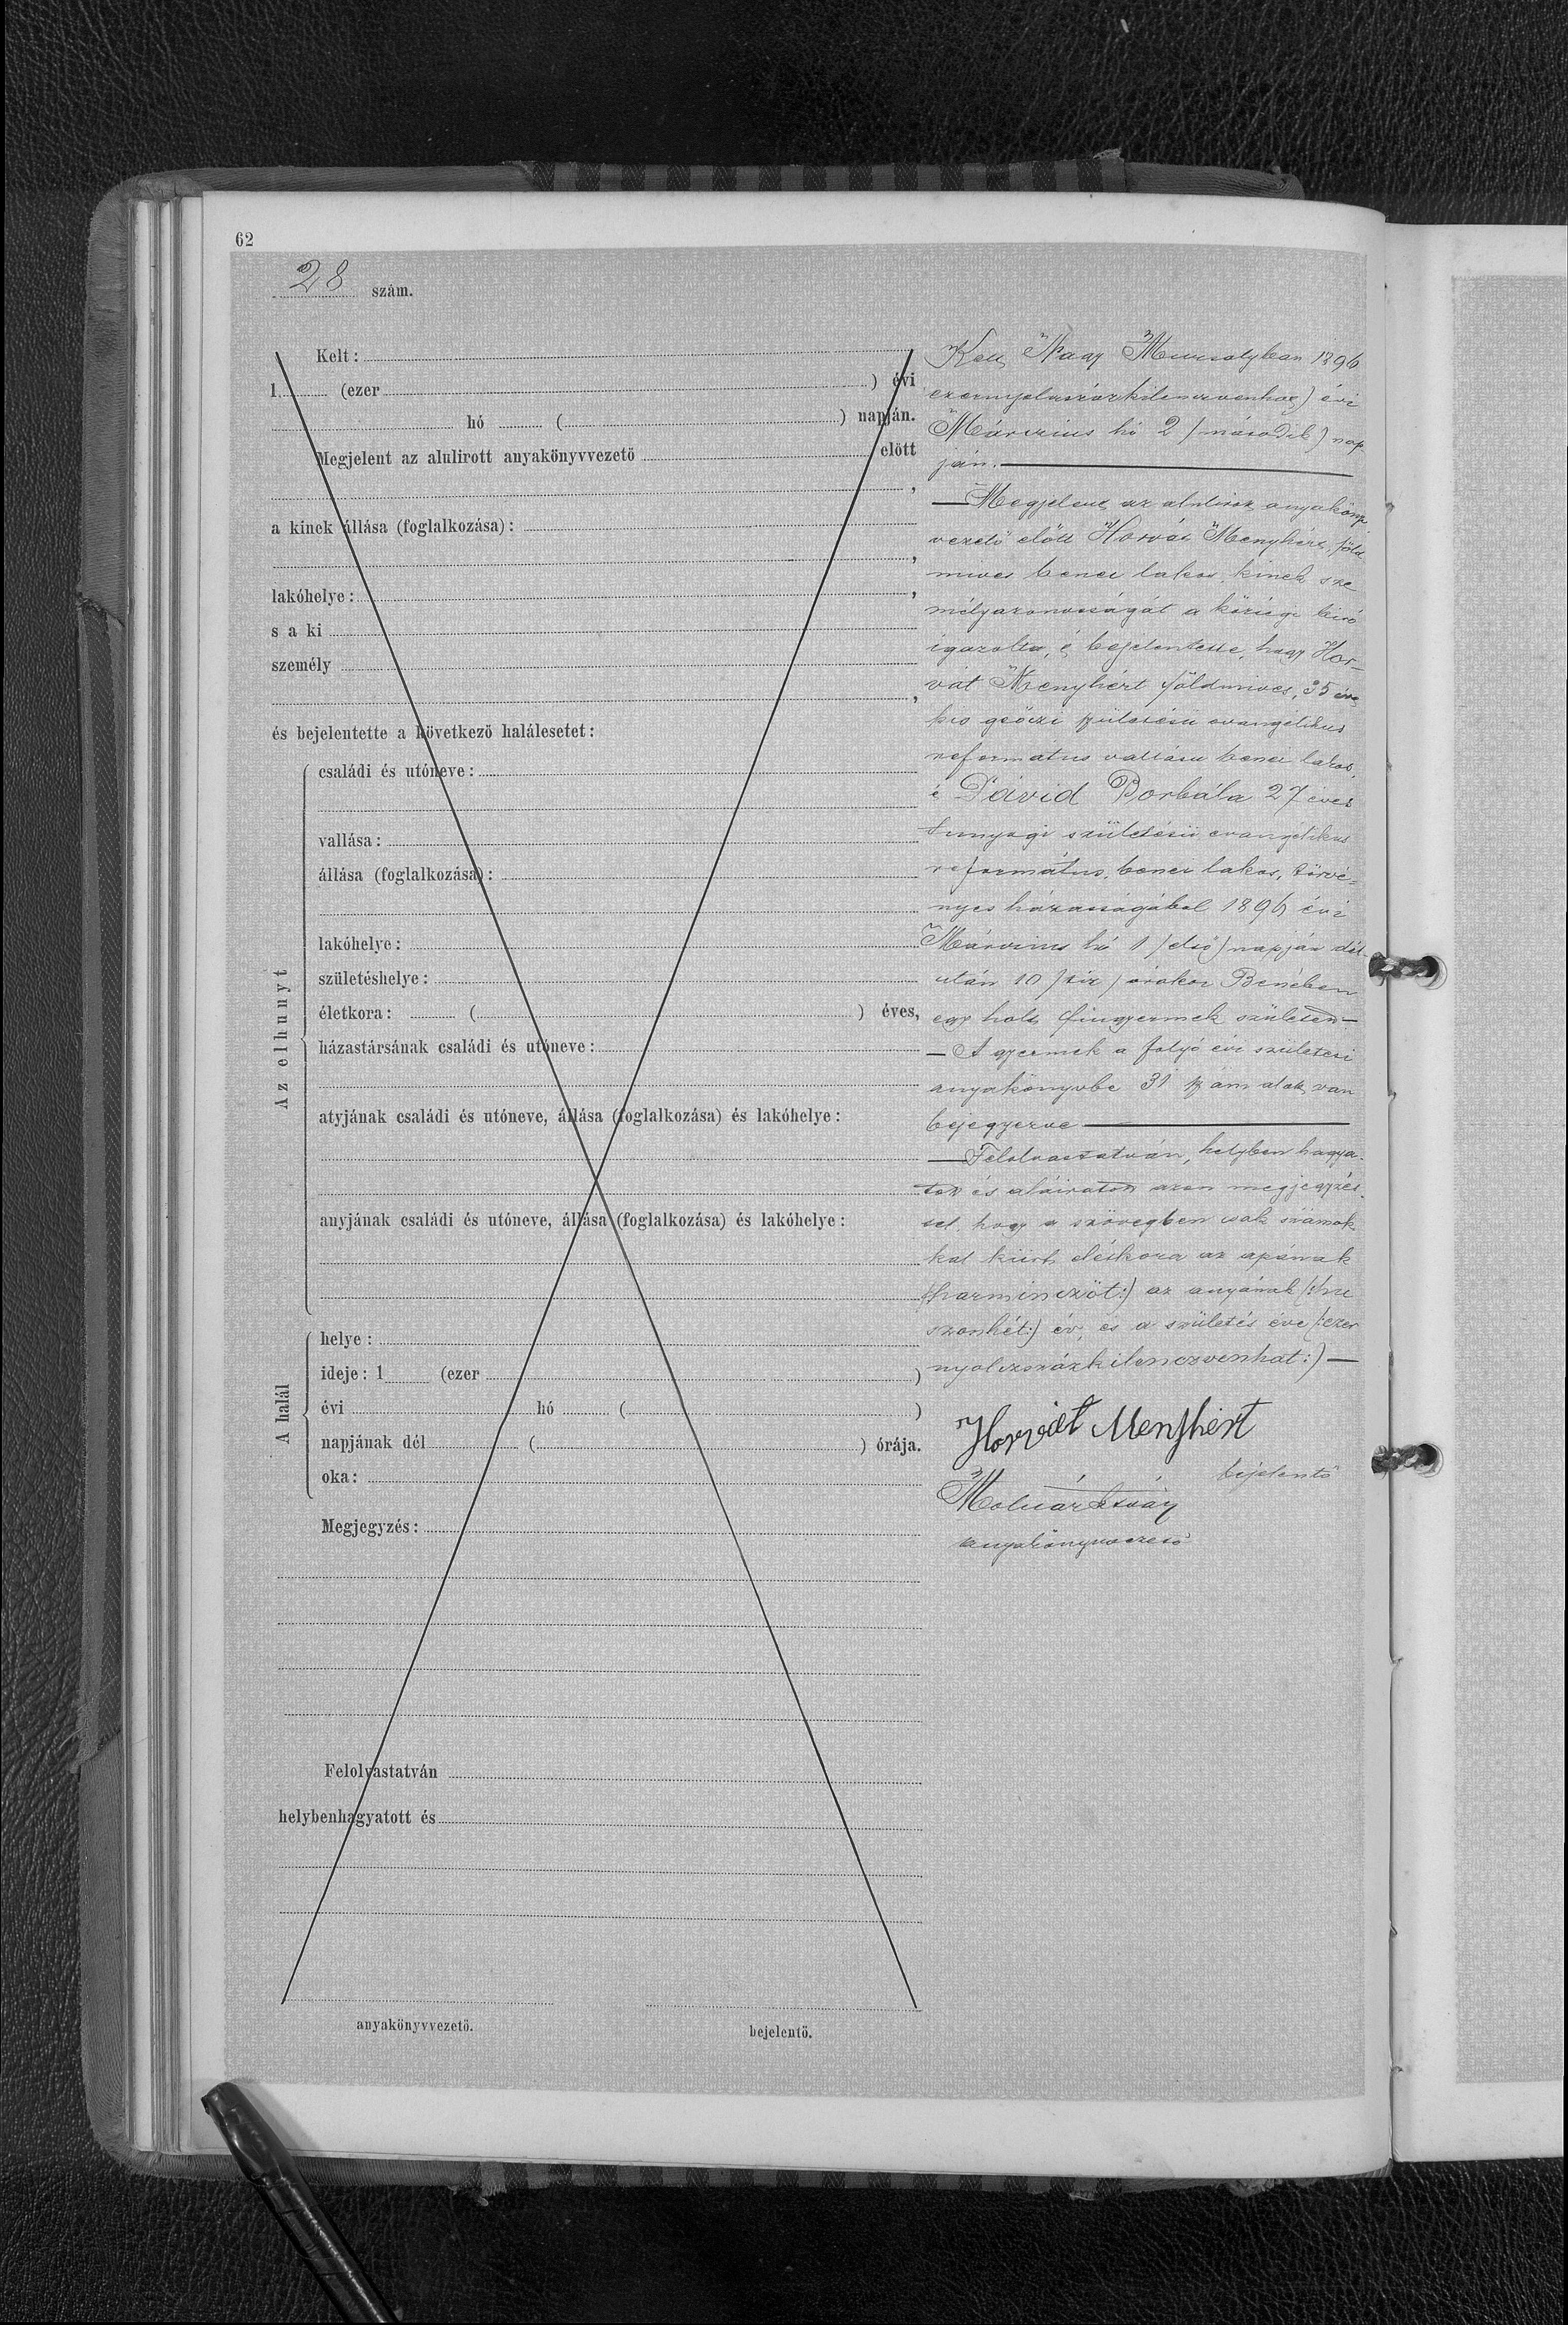 62
28 szám.
Kelt:
1 (ezer ) évi
hó ( ) napján.
Megjelent az alulirott anyakönyvvezető előtt
,
a kinek állása (foglalkozása):
,
lakóhelye: ,
s a ki
személy
,
és bejelentette a következő halálesetet:
Az elhunyt
családi és utóneve:
vallása:
állása (foglalkozása):
lakóhelye:
születéshelye:
életkora: ( ) éves,
házastársának családi és utóneve:
atyjának családi és utóneve, állása (foglalkozása) és lakóhelye:
anyjának családi és utóneve, állása (foglalkozása) és lakóhelye:
A halál
helye:
ideje: 1 (ezer )
évi hó ( )
napjának dél ( ) órája.
oka:
Megjegyzés:
Felolvastatván
helybenhagyatott és
anyakönyvvezető.
bejelentő.
Kelt Nagy 1896
ezernyolczszázkilenczvenhat) évi
Márczius hó 2 (második) nap
ján.
— Megjelent az alulirot anyaköny
vezető előtt Horvát Menyhért, föld
mives benei lakos, kinek sze
mélyazonosságát a községi biró
igazolta, é bejelentette, hogy Hor-
vát Menyhért földmives, 35 éve
kis születésü evangélikus
református vallásu benei lakos,
é Dávid Borbála 27 éves
tunyogi születésü evangélikus
református, benei lakos, törvé-
nyes házasságából 1896 évi
Márczius hó 1 (első) napján dél-
után 10 (tiz) órakor Benében
egy holt fiugyermek született —
— A gyermek a folyó évi születesi
anyakönyvbe 31 szám alatt van
bejegyezve
— Felolvastatván, helyben hagya-
tott és aláiratott azon megjegyzés-
sel, hogy a szövegben csak számok
kal kiirt életkora az apának
(:harminczöt:) az anyának (:hu
szonhét:) év, és a születés éve (:ezer
nyolczszázkilenczvenhat:) —
Horvát Menyhért
bejelentő
Molnár István
anyakönyvvezető